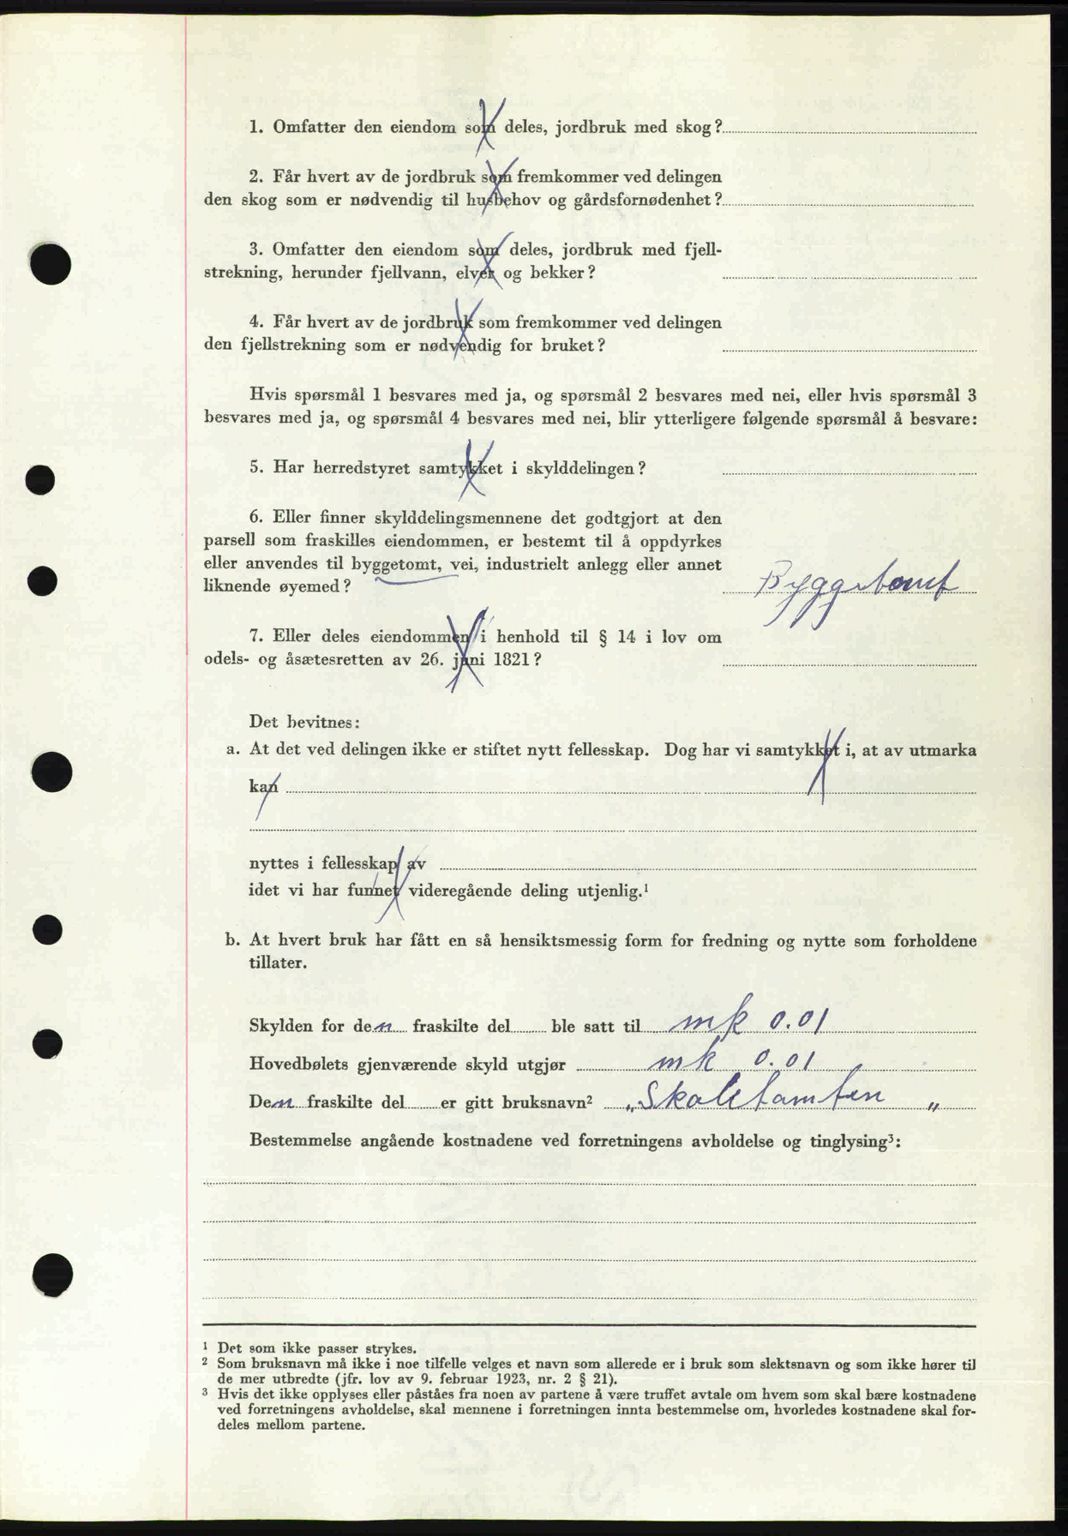 1. Omfatter den eiendom som deles, jordbruk med skog?
2. Får hvert av de jordbruk som fremkommer ved delingen
den skog som er nødvendig til husbehov og gårdsfornødenhet?
3. Omfatter den eiendom som deles, jordbruk med fjell-
strekning, herunder fjellvann, elver og bekker?
4. Får hvert av de jordbruk som fremkommer ved delingen
den fjellstrekning som er nødvendig for bruket?
Hvis spørsmål 1 besvares med ja, og spørsmål 2 besvares med nei, eller hvis spørsmål 3
besvares med ja, og spørsmål 4 besvares med nei, blir ytterligere følgende spørsmål å besvare:
5. Har herredstyret samtykket i skylddelingen?
6. Eller finner skylddelingsmennene det godtgjort at den
parsell som fraskilles eiendommen, er bestemt til å oppdyrkes
eller anvendes til byggetomt, vei, industrielt anlegg eller annet
liknende øyemed? Byggetomt
7. Eller deles eiendommen i henhold til § 14 i lov om
odels- og åsætesretten av 26. juni 1821?
Det bevitnes:
a. At det ved delingen ikke er stiftet nytt fellesskap. Dog har vi samtykket i, at av utmarka
kan
nyttes i fellesskap av
idet vi har funnet videregående deling utjenlig.¹
b. At hvert bruk har fått en så hensiktsmessig form for fredning og nytte som forholdene
tillater.
Skylden for den fraskilte del ble satt til mk 0.01
Hovedbølets gjenværende skyld utgjør mk 0.01
Den fraskilte del er gitt bruksnavn² „Skoletomten„
Bestemmelse angående kostnadene ved forretningens avholdelse og tinglysing³:
¹ Det som ikke passer strykes.
² Som bruksnavn må ikke i noe tilfelle velges et navn som allerede er i bruk som slektsnavn og som ikke hører til
de mer utbredte (jfr. lov av 9. februar 1923, nr. 2 § 21).
³ Hvis det ikke opplyses eller påståes fra noen av partene å være truffet avtale om hvem som skal bære kostnadene
ved forretningens avholdelse, skal mennene i forretningen innta bestemmelse om, hvorledes kostnadene skal for-
deles mellom partene.